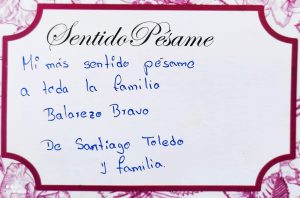 Sentido Pésame
Mi más sentido pésame
a toda la familia
Balarezo Bravo
De Santiago Toledo
y familia.